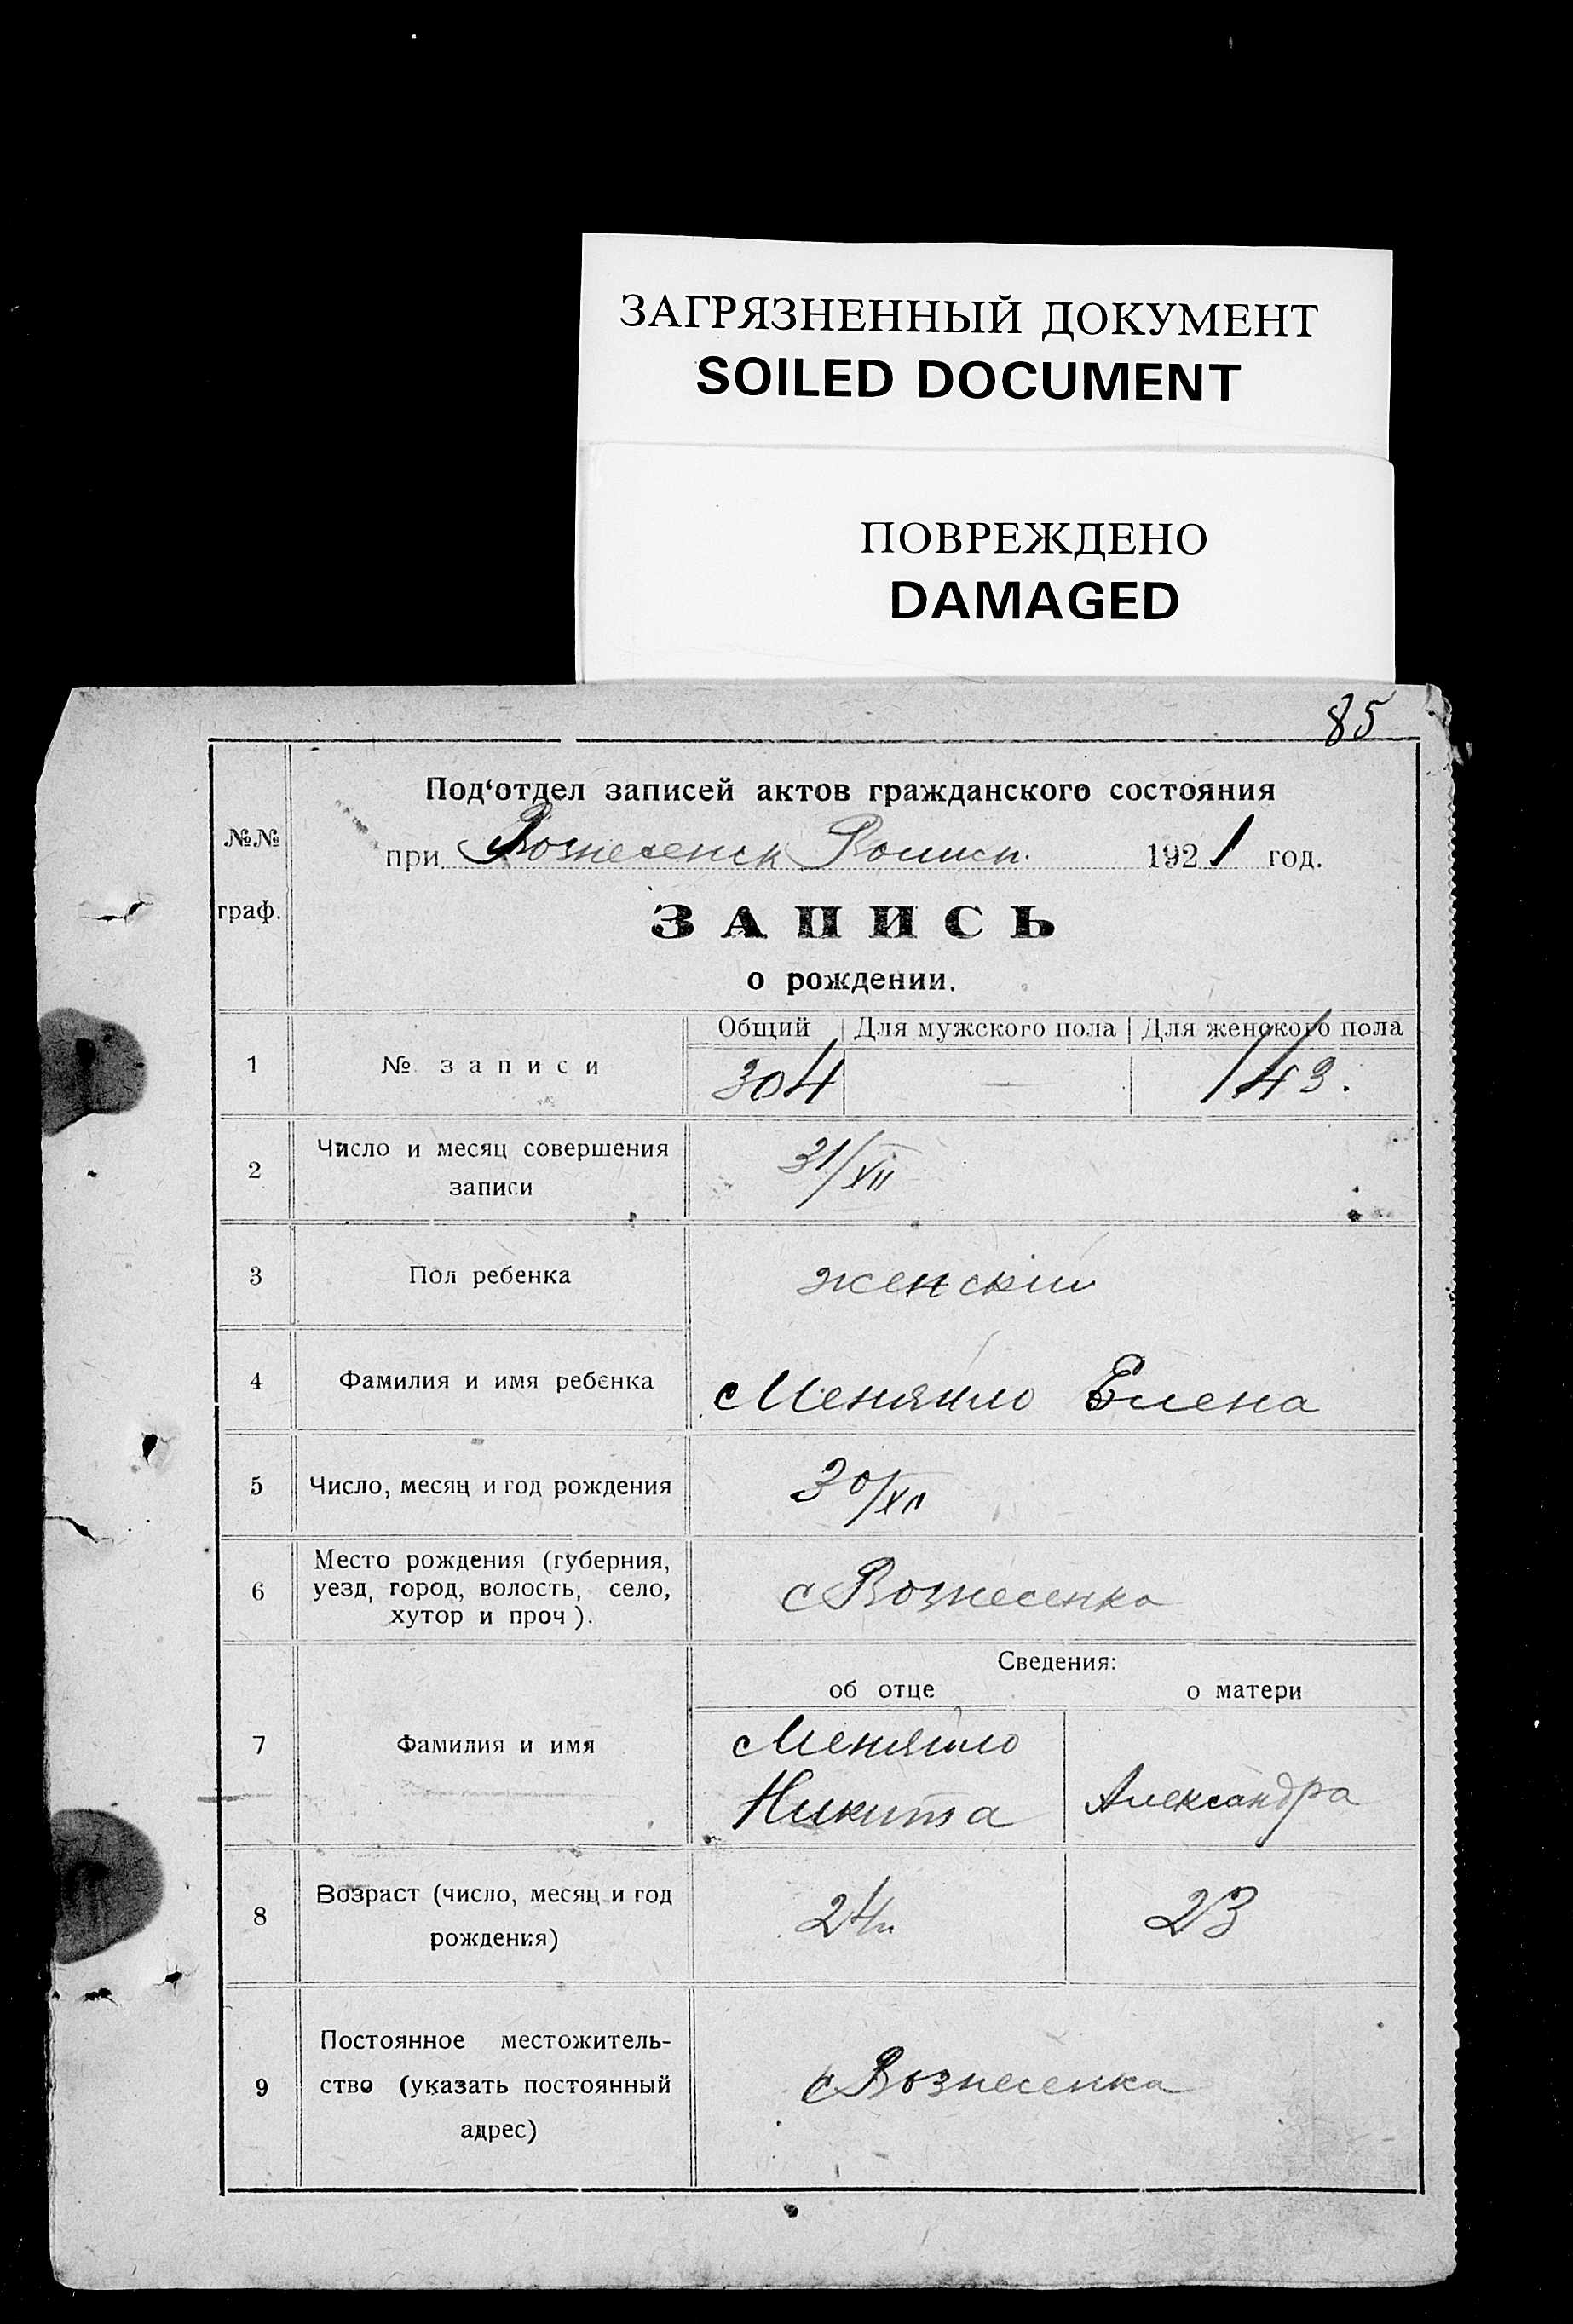 ЗАГРЯЗНЕННЫЙ ДОКУМЕНТ
SOILED DOCUMENT
ПОВРЕЖДЕНО
DAMAGED
85
№№ граф.
Под‘отдел записей актов гражданского состояния
при Вознесенск 1921 год.
ЗАПИСЬ
о рождении.
Общий Для мужского пола Для женского пола
1 № записи 304 — 143.
2 Число и месяц совершения 31/XII
записи
3 Пол ребенка женскій
4 Фамилия и имя ребенка Меняйло Елена
5 Число, месяц и год рождения 30/XII
Место рождения (губерния,
6 уезд, город, волость, село, с Вознесенка
хутор и проч).
Сведения:
об отце о матери
7 Фамилия и имя Меняйло
Никита Александра
8 Возраст (число, месяц и год 24 23
рождения)
Постоянное местожитель-
9 ство (указать постоянный с Вознесенка
адрес)